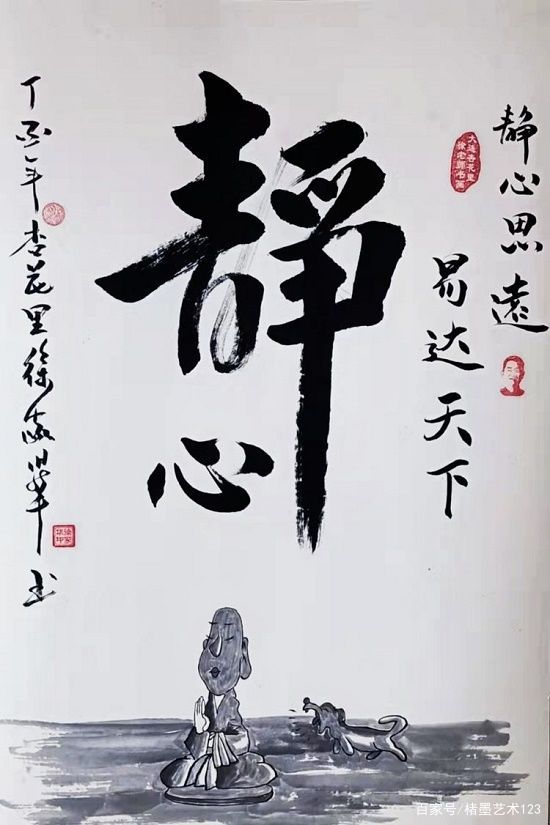 静心思遠
易达天下
大连杏花里
徐老师书画
静心
丁酉年杏花里徐 华书
百家号/楮墨艺术123